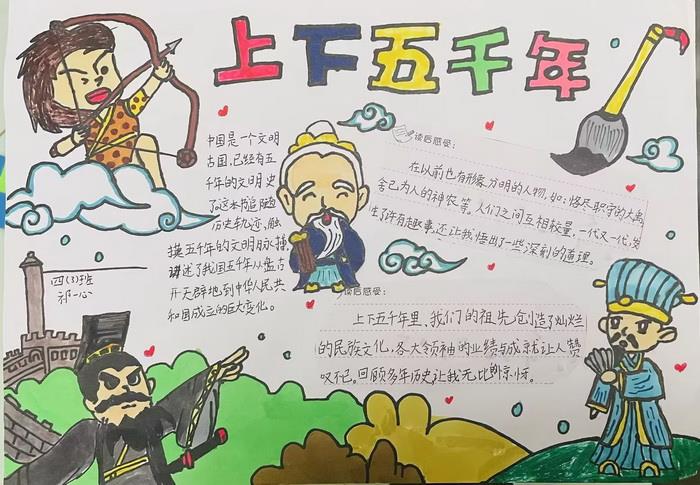 上下五千年
中国是一个文明
古国,已经有五
千年的文明史
了,这本书追随
历史轨迹,触
摸五千年的文明脉搏,
讲述了我国五千年从盘古
开天辟地到中华人民共
和国成立的巨大变化。
读后感受:
在以前也有形象分明的人物,如:恪尽职守的大禹,
舍己为人的神农等。人们之间互相较量,一代又一代,发
生了许有趣事,还让我悟出了一些深刻的道理。
四(3)班
祁一心
读后感受:
上下五千年里,我们的祖先创造了灿烂
的民族文化,各大领袖的业绩与成就让人赞
叹不已。回顾多年历史让我无比的惊讶。